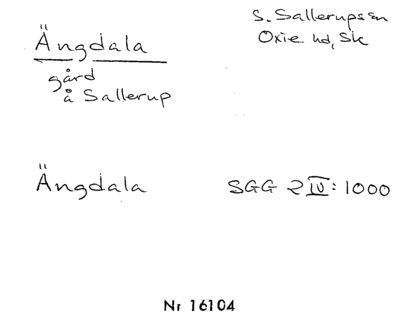 Ängdala
gård
å Sallerup
S. Sallerups sn
Oxie hd, Sk
Ängdala
SGG 2 IV: 1000
Nr 16104